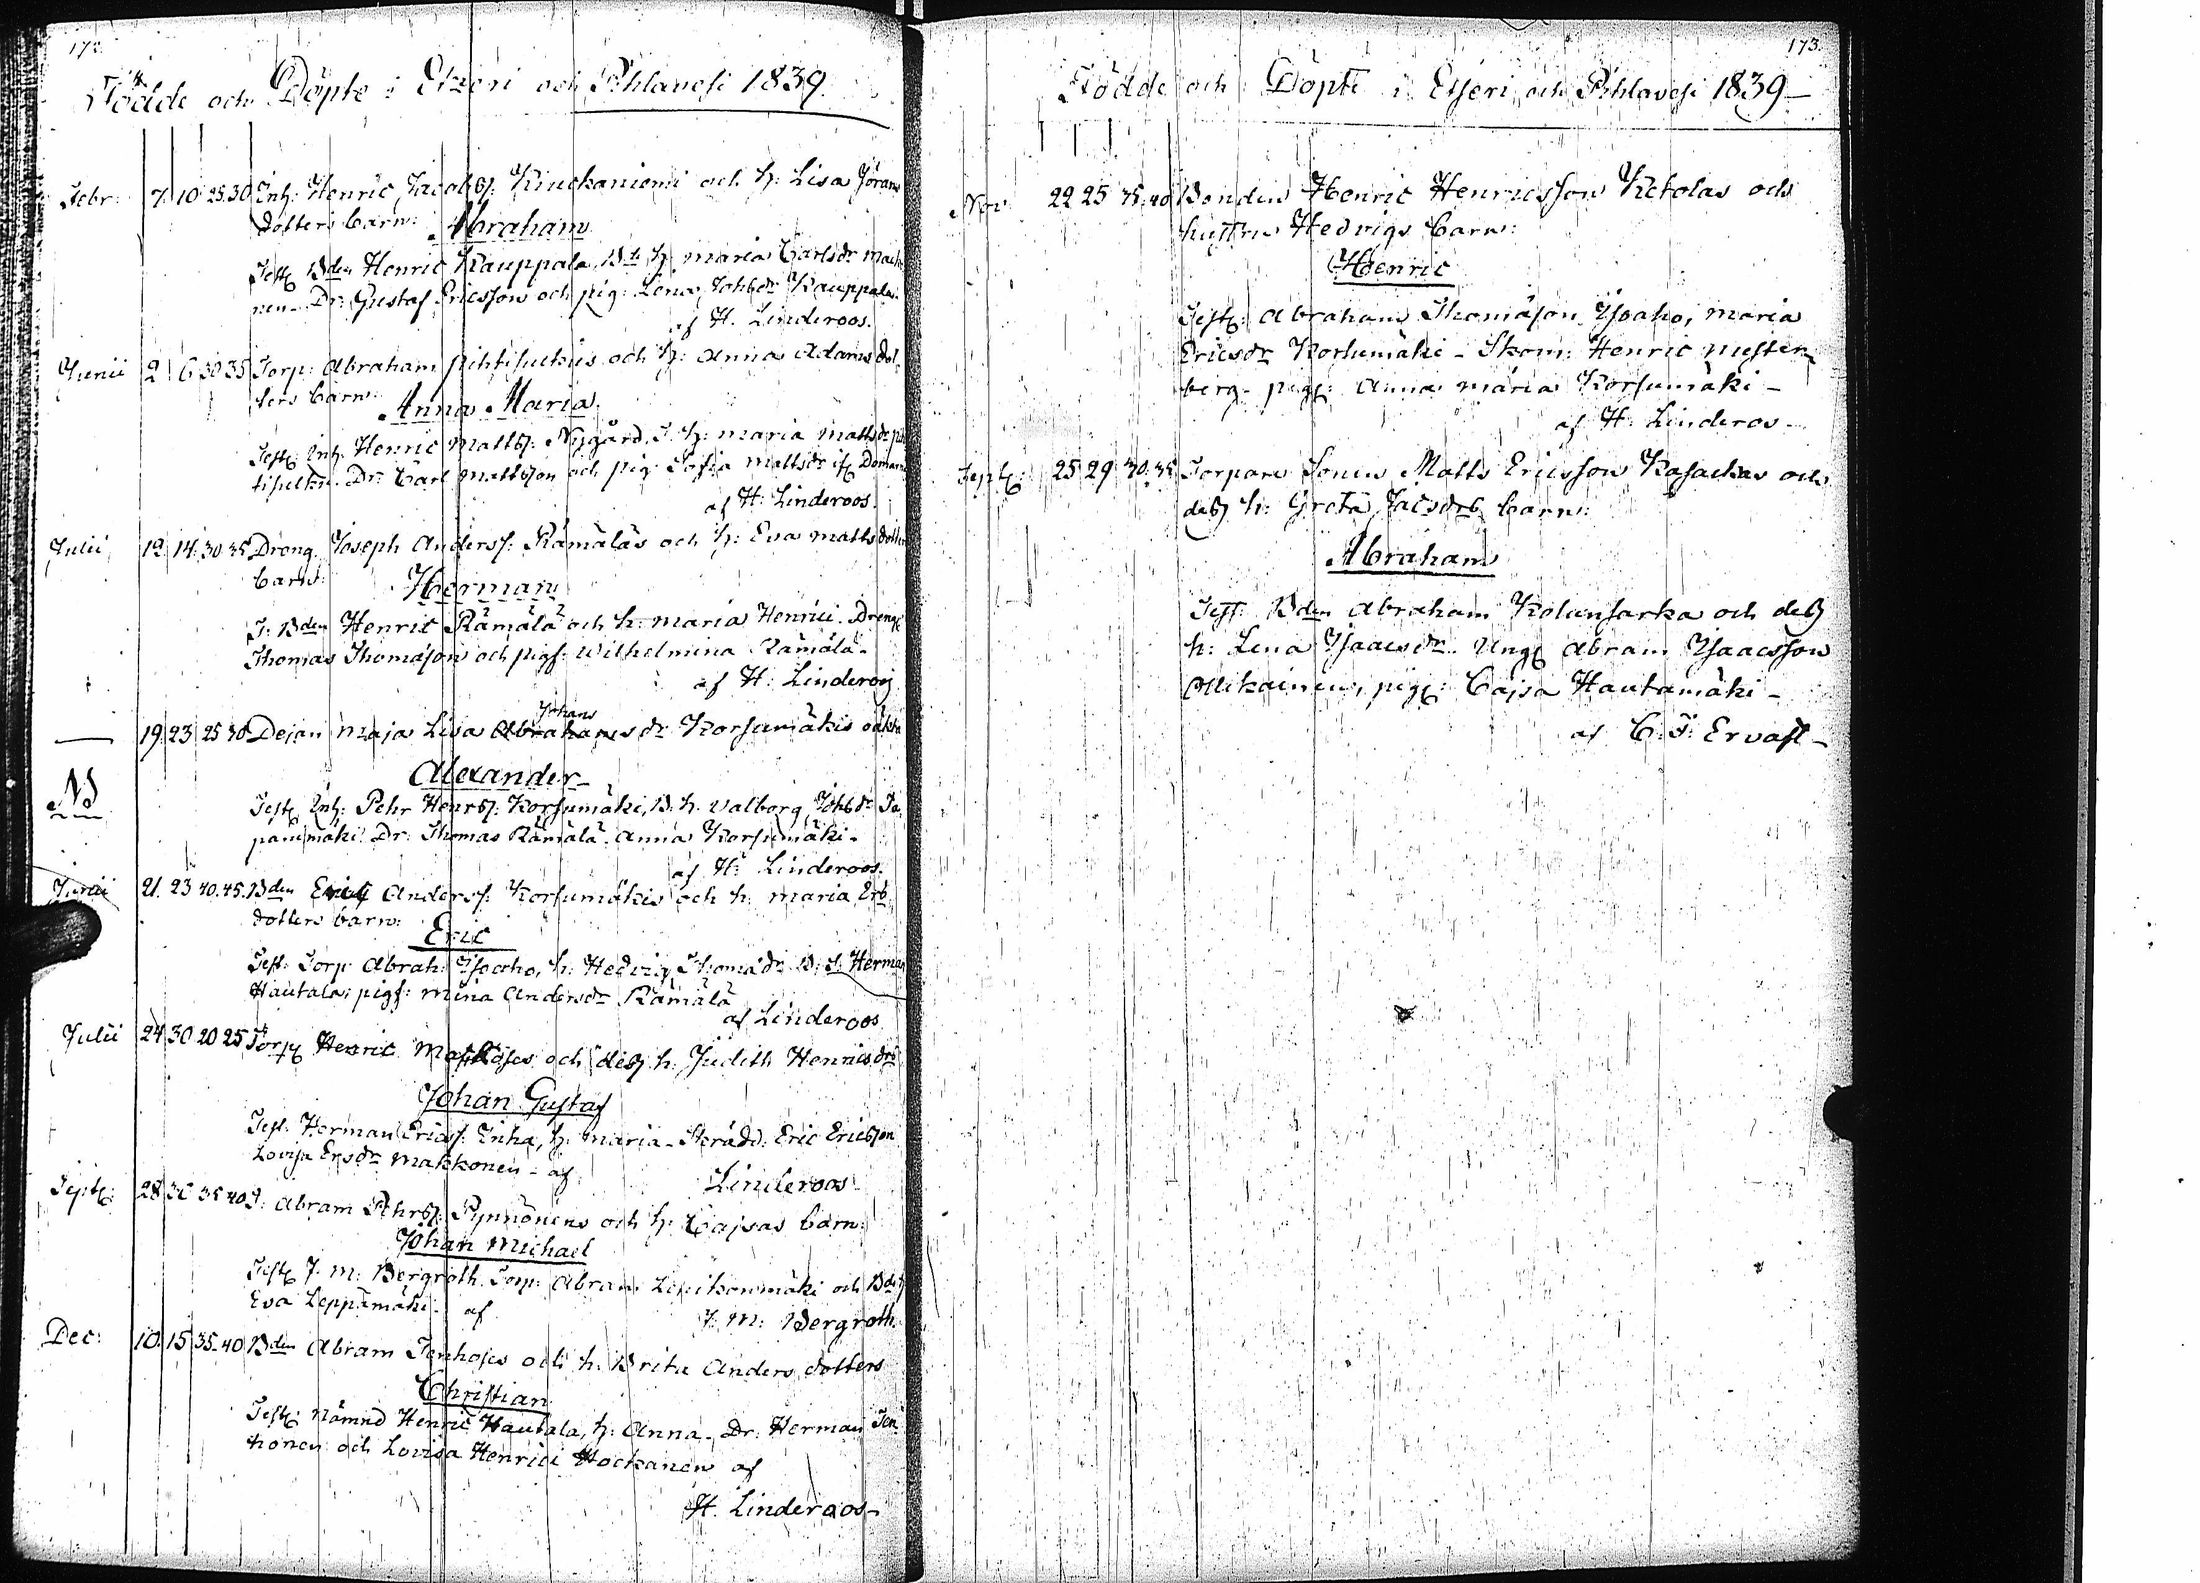 172.
Födde och Döpte i Etzeri och Pihlavesi 1839.
Febr: 7. 10 25.30 Inh: Henric Jacobss: Kiuckaniemi och h: Lisa Jörans
dotters barn: Abraham
Test: Bden Henric Kauppala, Bde h. Maria Carlsdr
nen. Dr: Gustaf Ericsson och pig: Lena Johsdr Kauppala.
af H. Linderoos.
Junii 2 6 30 35 Torp: Abraham och h: Anna Adams dot
ters barn: Anna Maria
Test: Inh: Henric Mattss: Nygård. h: Maria Mattsdr
Dr: Carl Mattsson och pig: Sofia Mattsdr
af H: Linderoos.
Julii 12 14. 30 35 Dreng. Joseph Anderss: Rämäläs och h: Eva Matts dotters
barn: Herman
T: Bden Henric Rämälä och h: Maria Henrici. Dreng:
Thomas Thomasson och pigs: Wilhelmina Rämälä.
af H. Linderoos
— 19 23 25 30 Dejan Maja Lisa Abrahams Johans dr Korsumäkis oäkta
Alexander
NB Test: Inh: Pehr Henrss: Korsumäki, B: h. Valborg Johsdr
Dr: Thomas Rämälä. Anna Korsumäki.
af H: Linderoos.
Junii 21. 23 40. 45. Bden Eric Anderss: Korsumäkis och h. Maria Ers
dotters barn: Eric
Test: Torp: Abrah: Ysoaho, h: Hedvig Thomadr B: S: Herman
Hautala, pigs: Mina Andersdr Rämälä
af Linderoos
Julii 24 30 20 25 Torp: Henric och dess h: Judith Henricsdrs
Johan Gustaf
Test: Herman Ericss: Inha, h: Maria. Skrädd: Eric Ericsson
Lovisa Ersdr Makkonen - af
Linderoos
Sept: 28 30 35 40 T: Abram Pehrss: Pynnönens och h: Cajsas barn:
Johan Michael
Test: J. M: Bergroth. Torp: Abram och Bde h
Eva Leppämäki. af
J. M: Bergroth.
Dec: 10 15 35-40 Bden Abram Tenhoses och h. Brita Anders dotters
Christian
Test: Nämnd Henric Hautala, h: Anna. Dr: Herman Ten
honen och Lovisa Henrici Hockanen af
H. Linderoos
173.
Födde och Döpte i Etseri och Pihlavesi 1839
Nov: 22 25 35.40 Bonden Henric Henricsson Ketolas och
huttru Hedvigs barn:
Henric
Test: Abraham Thomasson Ysoaho, Maria
Ericsdr Korsumäki - Skom: Henric
berg. pigs: Anna Maria Korsumäki -
af H: Linderos -
Sept: 25 29 30.35 Torpare Sonen Matts Ericsson Kasackas och
dess h: Greta Jacsdrs barn:
Abraham
Test: Bden Abraham Kolunsarka och dess
h: Lena Ysaacsdr. Ung: Abram Ysaacsson
Ollikainen, pigs: Cajsa Hautamäki -
af C. F: Ervast -